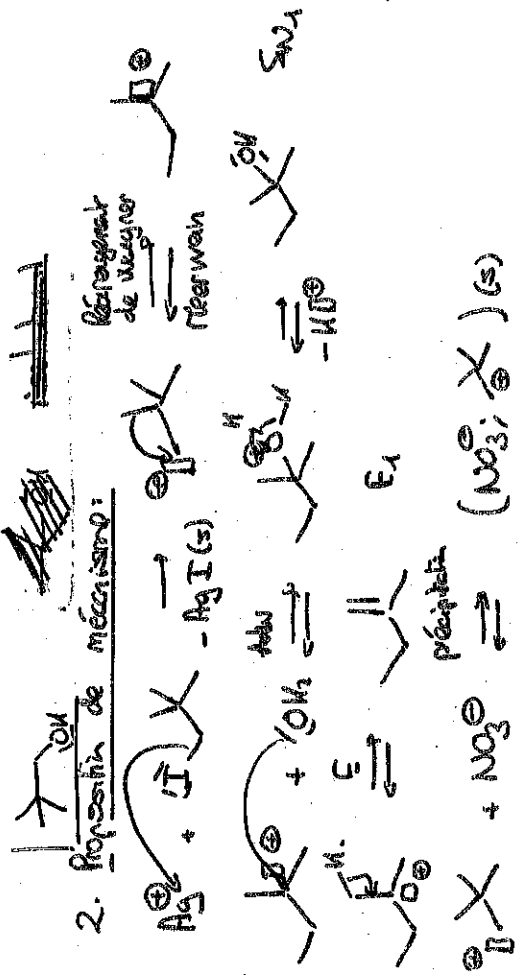 OH
2. Proposition de mécanisme:
Ag⊕ + I → - AgI(s) ⊕ Réarrangement de Wagner Meerwein ⊕
⊕ + OH2 ⇌ ⊕ H H ⇌ - H⊕ OH SN1
H ⊕ E ⇌ E1
⊕ + NO3⊖ précipitation ⇌ (NO3⊖; ⊕)(s)